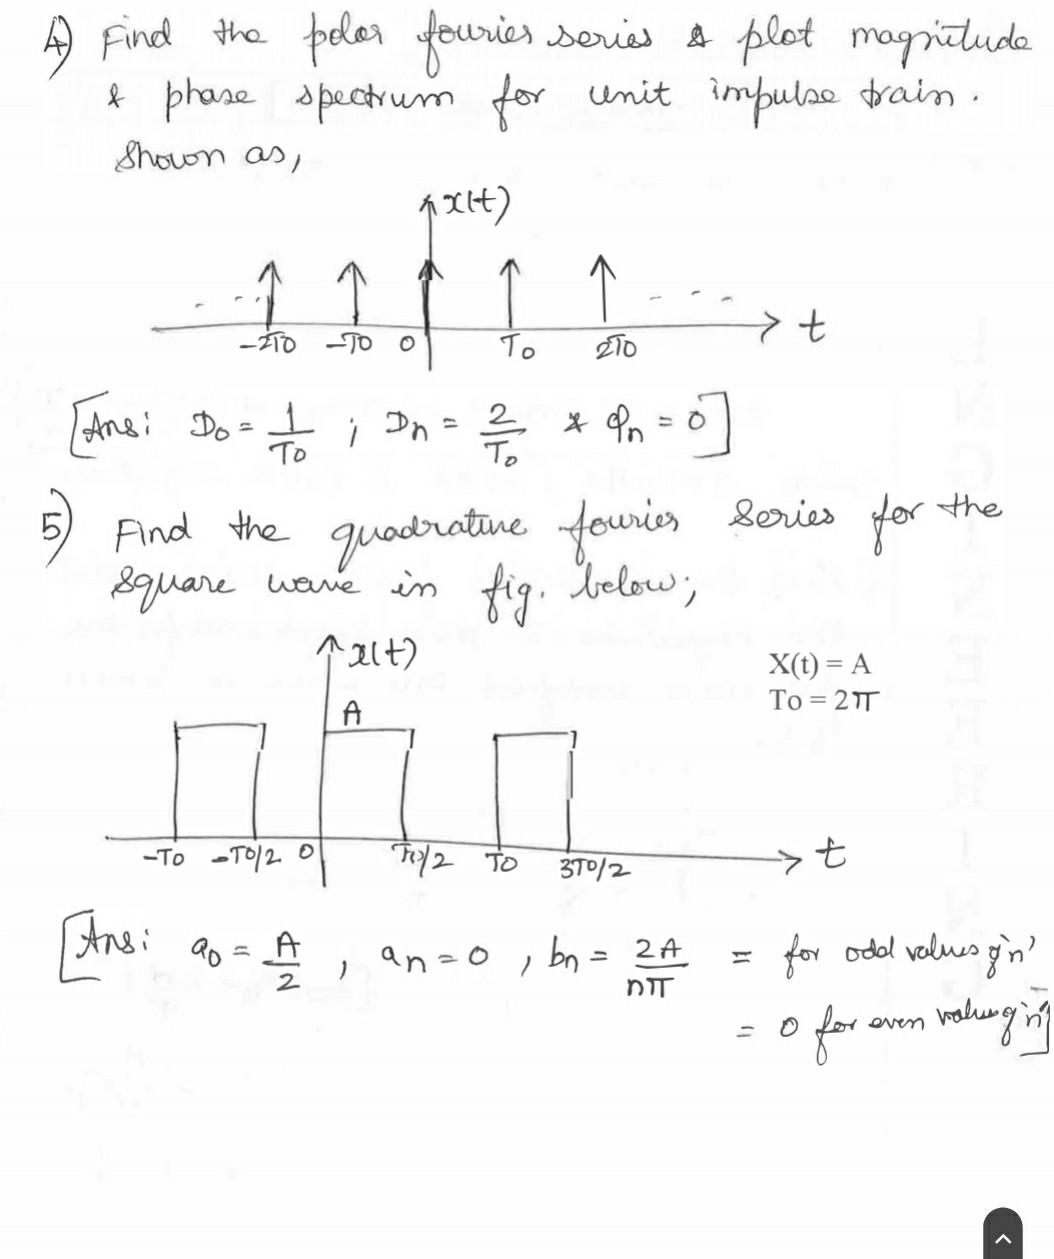 4) Find the polar fourier series & plot magnitude
& phase spectrum for unit impulse train.
Shown as,
x(t)
... -2T0 -T0 0 T0 2T0 ... t
[Ans: D0 = 1/T0 ; Dn = 2/T0 & φn = 0]
5) Find the quadrature fourier Series for the
square wave in fig. below;
x(t)
X(t) = A
To = 2π
A
-T0 -T0/2 0 T0/2 T0 3T0/2 t
[Ans: a0 = A/2 , an = 0 , bn = 2A/nπ = for odd values of 'n'
= 0 for even values of 'n']